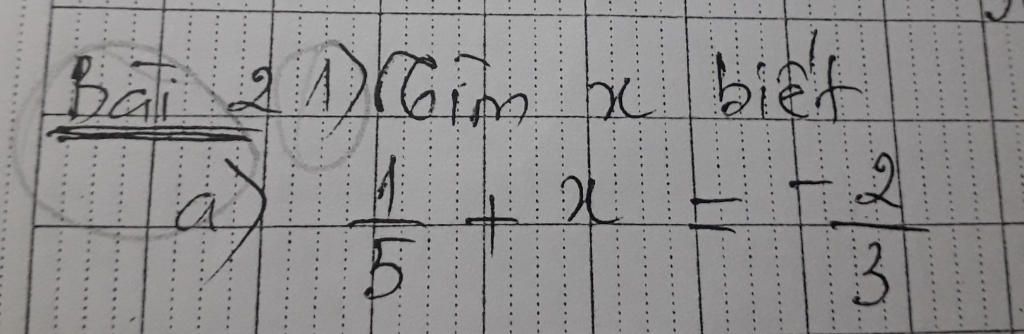 Bài 2 1) Tìm x biết
a) 1/5 + x = -2/3